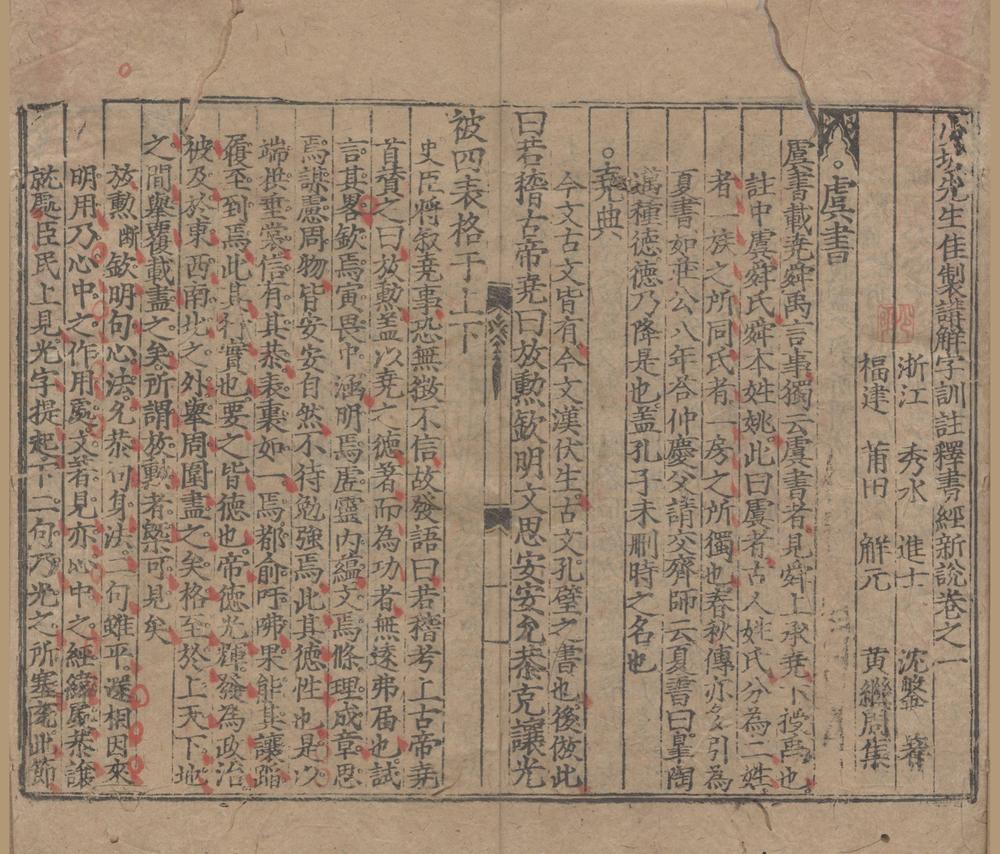 先生佳製講解字訓註釋書經新說卷之一
浙江 秀水 進士 沈 著
福建 莆田 解元 黃繼周集
虞書
虞書載堯舜禹言事獨云虞書者見舜上承堯下授禹也
註中虞舜氏舜本姓姚此曰虞者古人姓氏分為二姓
者一族之所同氏者一房之所獨也春秋傳亦多引為
夏書如莊公八年合仲慶父請交齊師云夏書曰皐陶
邁種德德乃降是也盖孔子未刪時之名也
堯典
今文古文皆有今文漢伏生古文孔壁之書也後倣此
曰若稽古帝堯曰放勲欽明文思安安允恭克讓光
被四表格于上下
史臣將叙堯事恐無徵不信故發語曰若稽考上古帝堯
首賛之曰放勲盖以堯之德著而為功者無遠弗届也試
言其畧欽焉寅畏中涵明焉虛靈内蘊文焉條理成章思
焉謀慮周物皆安安自然不待勉強焉此其德性也是以
端拱垂裳信有其恭表裏如一焉都俞吁咈果能其讓踏
履至到焉此其行實也要之皆德也帝德光輝發為政治
被及於東西南北之外舉周圍盡之矣格至於上天下地
之間舉覆載盡之矣所謂放勲者槩可見矣
放勲断欽明句心法允恭句身法二句雖平還相因來
明用乃心中之作用處文著見亦心中之經緯處恭讓
就處臣民上見光字提起下二句乃光之所塞充此節